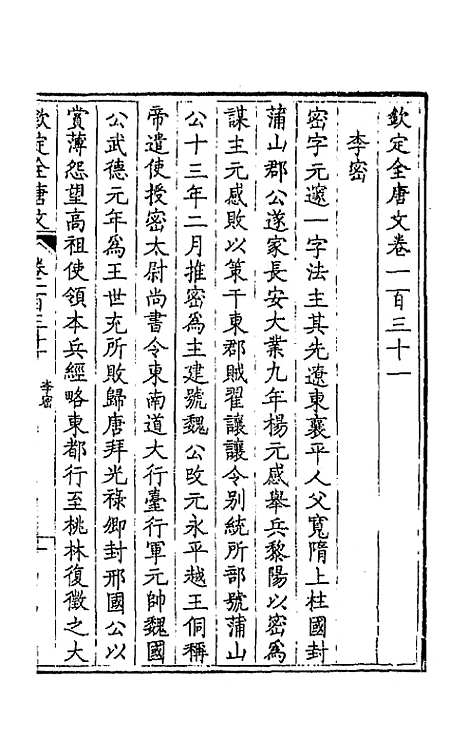 欽定全唐文卷一百三十一
李密
密字元邃一字法主其先遼東襄平人父寬隋上柱國封
蒲山郡公遂家長安大業九年楊元感舉兵黎陽以密為
謀主元感敗以策干東郡賊翟讓讓令別統所部號蒲山
公十三年二月推密為主建號魏公改元永平越王侗稱
帝遣使授密太尉尚書令東南道大行臺行軍元帥魏國
公武德元年為王世充所敗歸唐拜光祿卿封邢國公以
賞薄怨望高祖使領本兵經略東都行至桃林復徵之大
欽定全唐文
卷一百三十一
李密